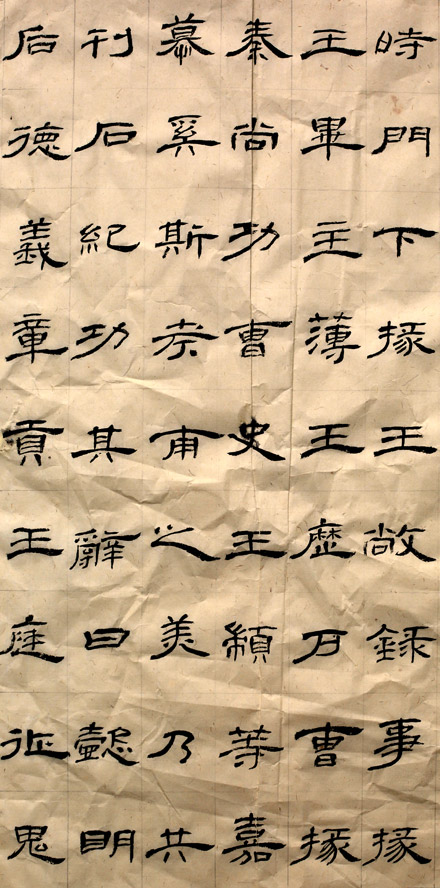 時門下掾王敞録事掾
王畢主薄王歷戶曹掾
秦尚功曹史王顓等嘉
慕奚斯考甫之美乃共
刊石紀功其辭曰懿明
后德義章貢王庭征鬼